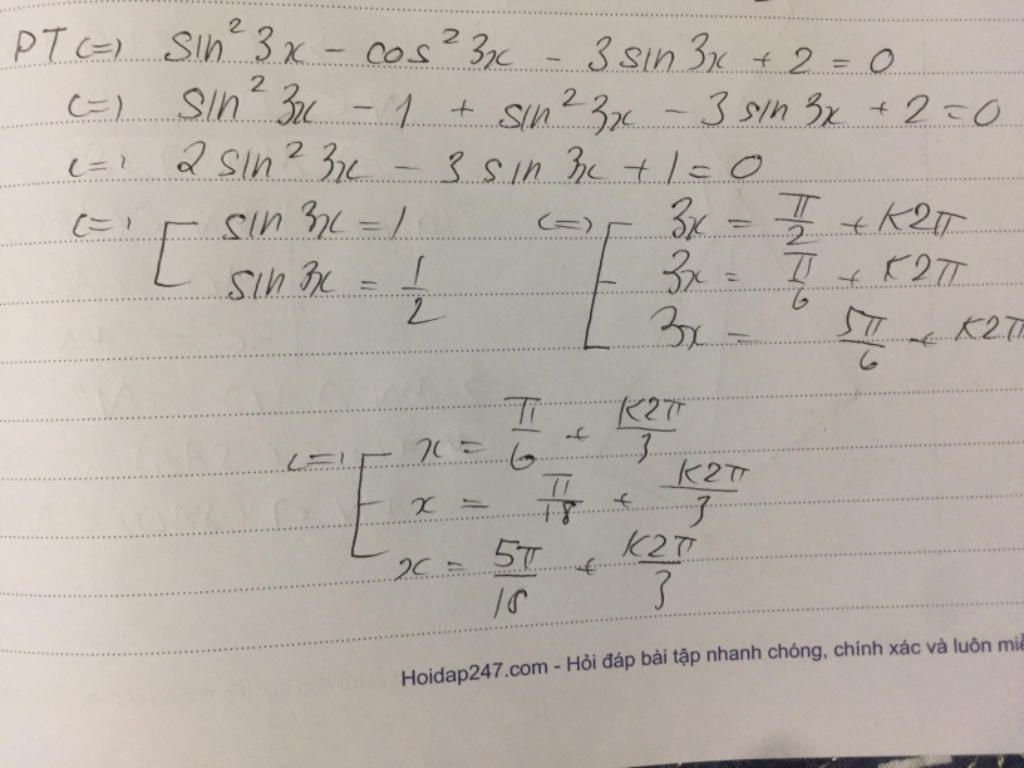 PT <=> sin²3x - cos²3x - 3sin3x + 2 = 0
<=> sin²3x - 1 + sin²3x - 3sin3x + 2 = 0
<=> 2sin²3x - 3sin3x + 1 = 0
<=> [ sin3x = 1 <=> [ 3x = π/2 + K2π
sin3x = 1/2 3x = π/6 + K2π
3x = 5π/6 + K2π
<=> [ x = π/6 + K2π/3
x = π/18 + K2π/3
x = 5π/18 + K2π/3
Hoidap247.com - Hỏi đáp bài tập nhanh chóng, chính xác và luôn